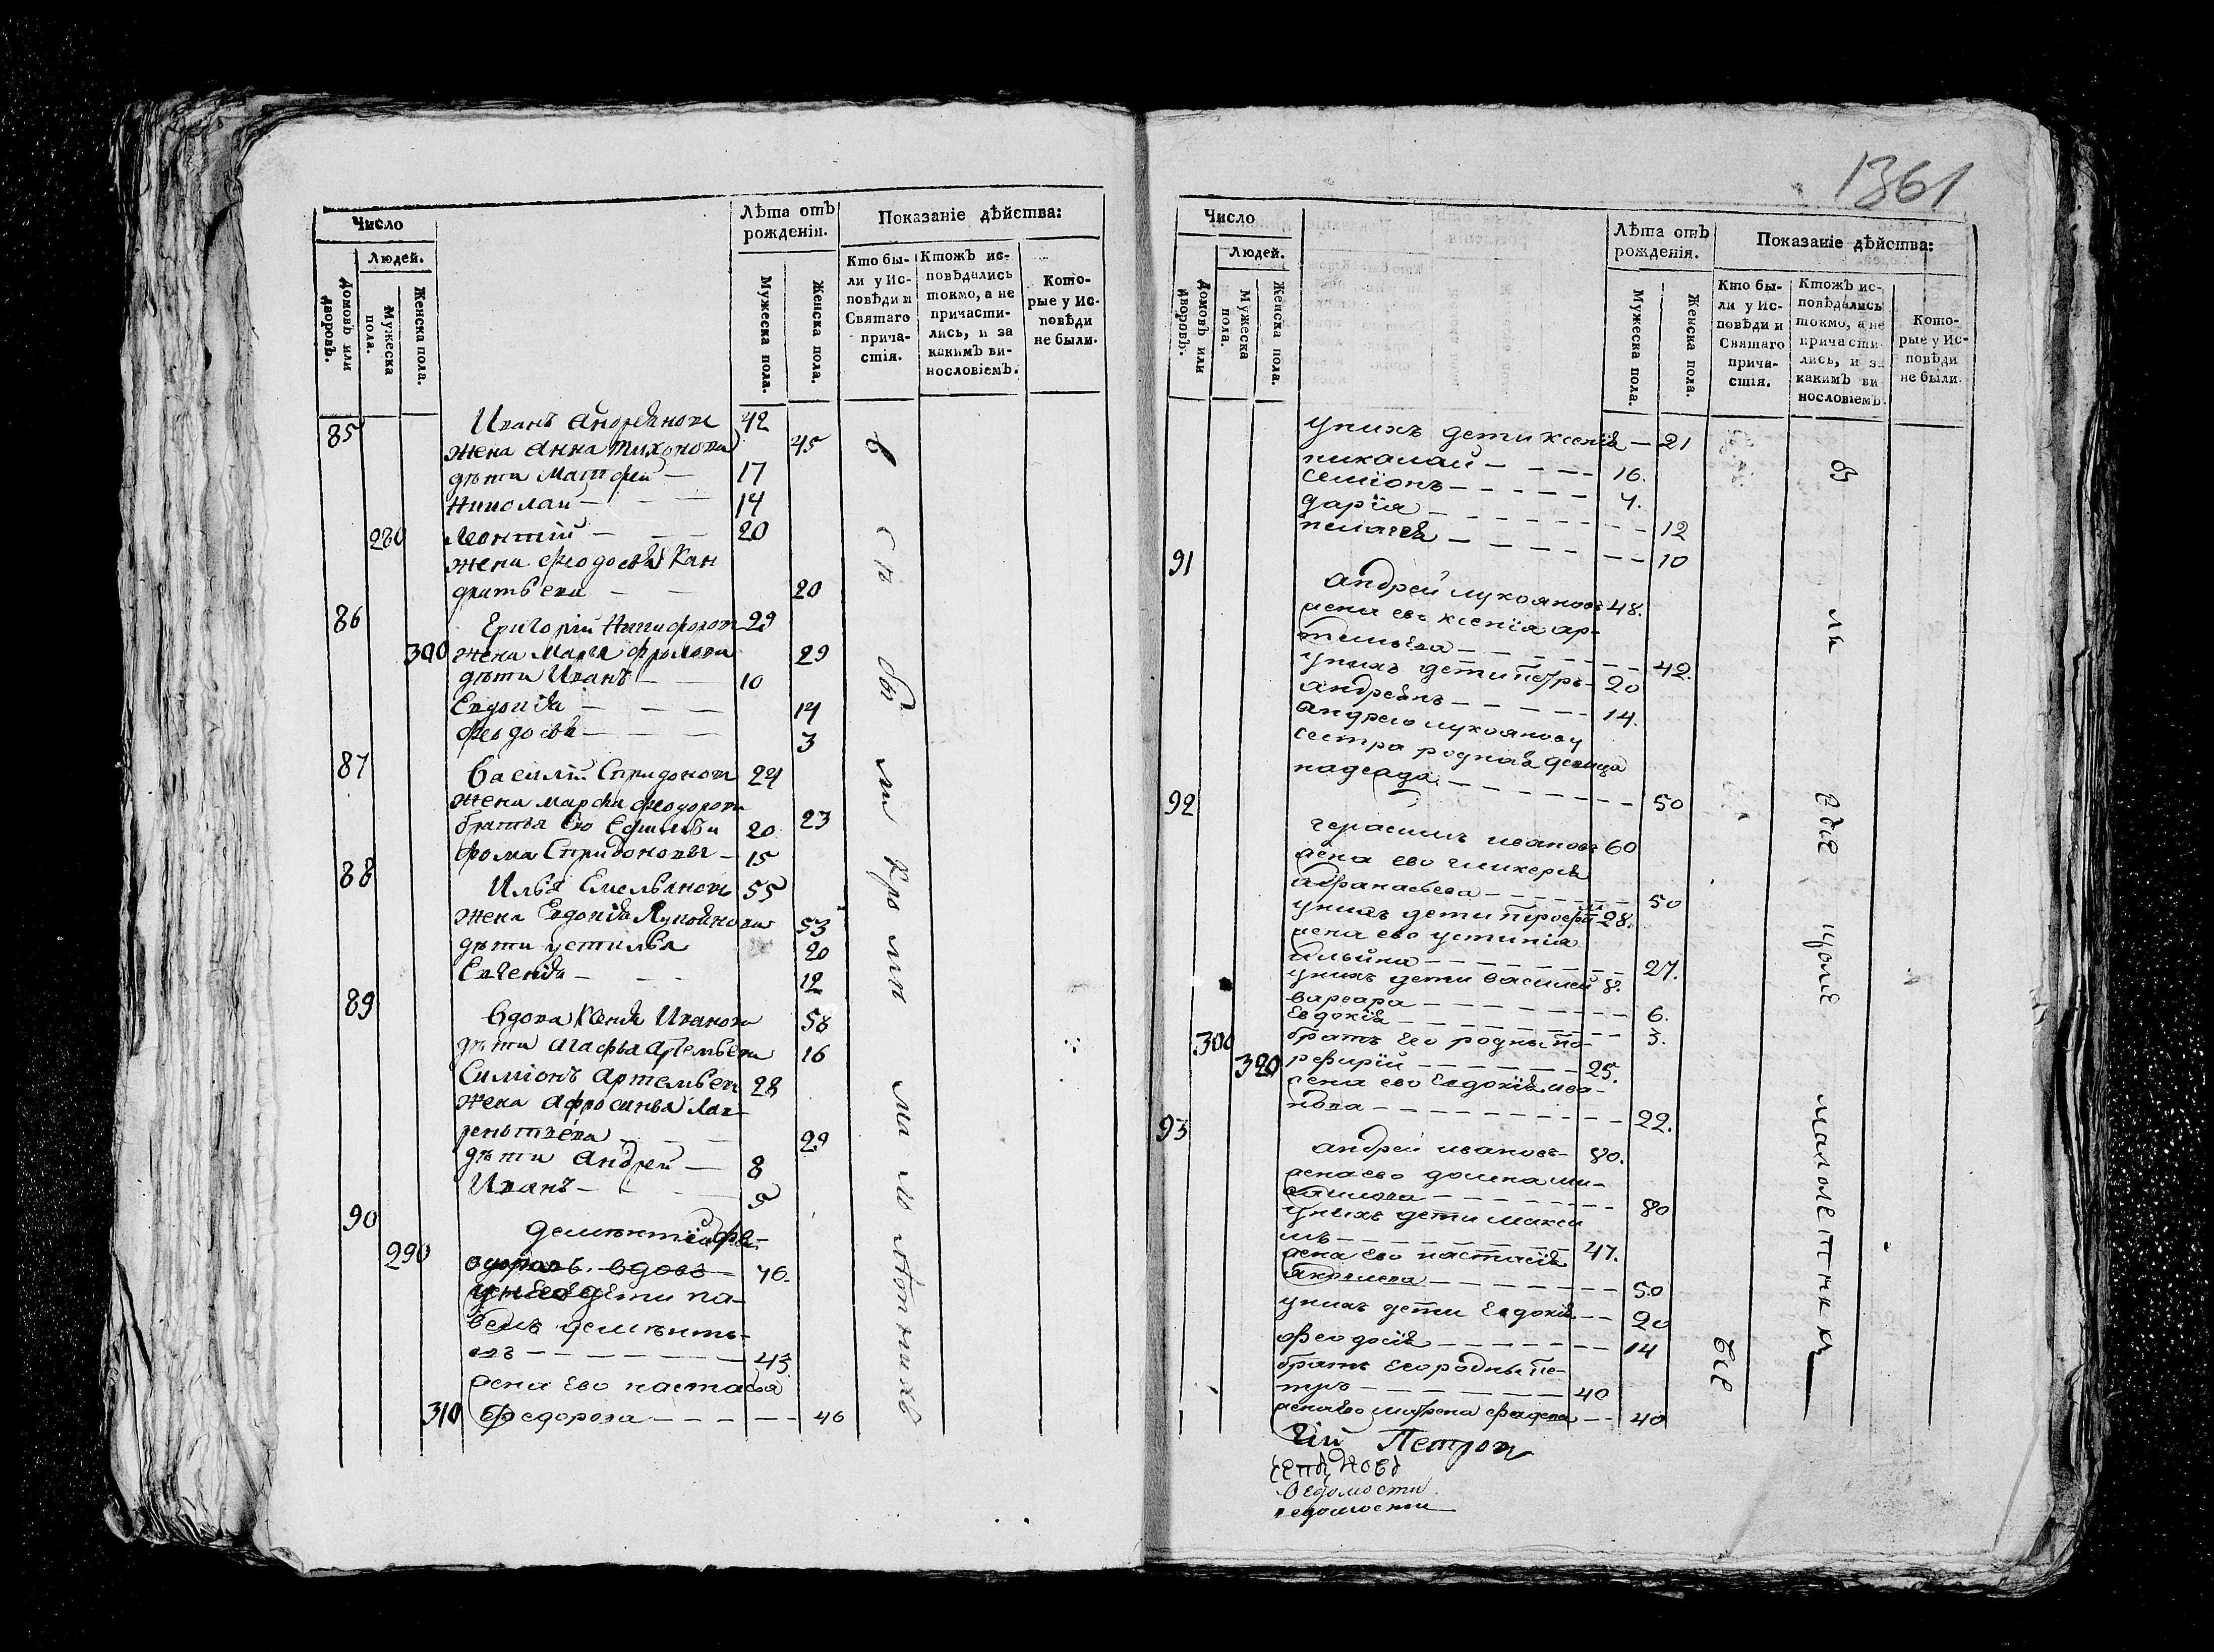 Число
Людей.
Домовъ или дворовъ.
Мужеска пола.
Женска пола.
Лѣта отъ рожденія.
Мужеска пола.
Женска пола.
Показаніе дѣйства:
Кто бы-
ли у Ис-
повѣди и
Святаго
прича-
стія.
Ктожъ ис-
повѣдались
токмо, а не
причасти-
лись, и за
какимъ ви-
нословіемъ.
Кото-
рые у Ис-
повѣди
не были.
85 Иванъ Андреяновъ 42
жена Анна Тихонова 45
дѣти Матфей 17
Николай 14
280 Леонтій 20
жена Феодосья Кан
дратьева 20
86 Григорій Никифоровъ 29
300 жена Марья Фролова 29
дѣти Иванъ 10
Евдокія 14
Феодосья 3
87 Василій Спридоновъ 24
жена Марфа Феодорова 23
братья ево Ефимъ 20
Фома Спридоновы 15
88 Илья Емельяновъ 55
жена Евдокія Лукоянова 53
дѣти устинья 20
Евгенія 12
89 вдова Ксенія Иванова 58
дѣти Агафья Артемьева 16
Симіонъ Артемьевъ 28
жена Афросинья Лав-
рентьева 29
дѣти Андрей 8
Иванъ 5
90 дементий фе-
290 одоровъ. вдовъ 76.
дети па-
велъ дементь-
евъ 43
жена ево настасья
310 Федорова 46
в си бы ли кро мѣ ма ло лѣт нихъ
1361
Число
Людей.
Домовъ или дворовъ.
Мужеска пола.
Женска пола.
Лѣта отъ рожденія.
Мужеска пола.
Женска пола.
Показаніе дѣйства:
Кто бы-
ли у Ис-
повѣди и
Святаго
прича-
стія.
Ктожъ ис-
повѣдались
токмо, а не
причасти-
лись, и за
какимъ ви-
нословіемъ.
Кото-
рые у Ис-
повѣди
не были.
унихъ дети ксенія 21
николай 16.
семіонъ 4.
дарія 12
пелагея 10
91 андрей лукояновъ 48.
жена ево ксенія ар-
темьева 42.
унихъ дети петръ 20
андреянъ 14.
андрею лукоянову
сестра родная девица
надежда 50
92 герасимъ ивановъ 60
жена ево гликерія
афанасьева 50
унихъ дети 28.
жена ево устинія
ильина 27.
унихъ дети василей 8.
варвара 6.
евдокія 3.
300 братъ его родны по-
320 рфирій 25.
жена ево Евдокія ива-
нова 22.
93 андрей ивановъ 80.
жена ево домна
80
унихъ дети макси
мъ 47.
жена ево настасія
50
унихъ дети Евдокія 20
феодосія 14
братъ его родны пе-
тръ 40
жена ево матрена 40
гій Петровъ
ведомости
ведомости
малолетнихъ